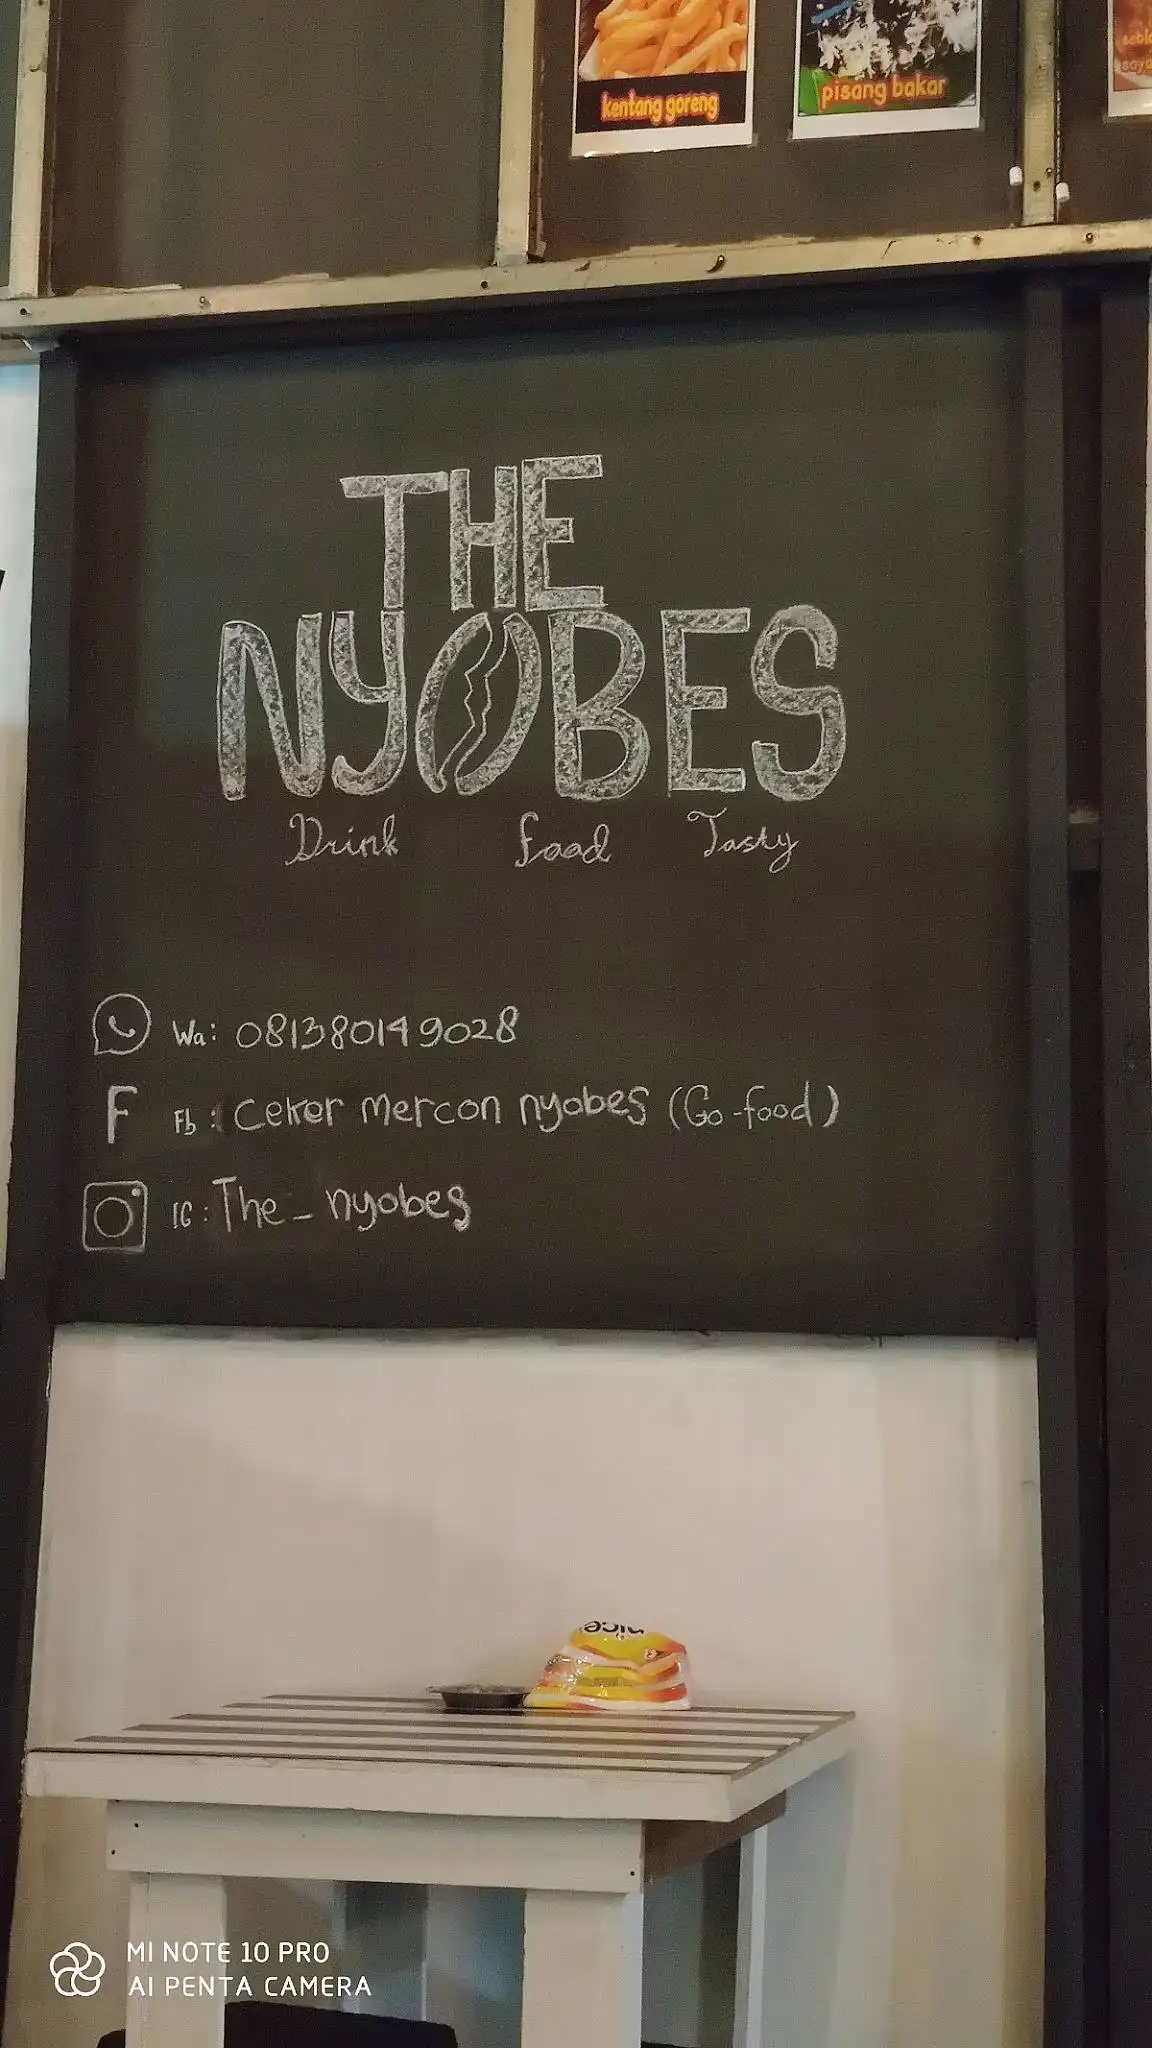 kentang goreng
pisang bakar
THE
NYOBES
Drink Food Tasty
Wa: 081380149028
F Fb: Ceker mercon nyobes (Go-food)
IG: The_nyobes
nice
MI NOTE 10 PRO
AI PENTA CAMERA